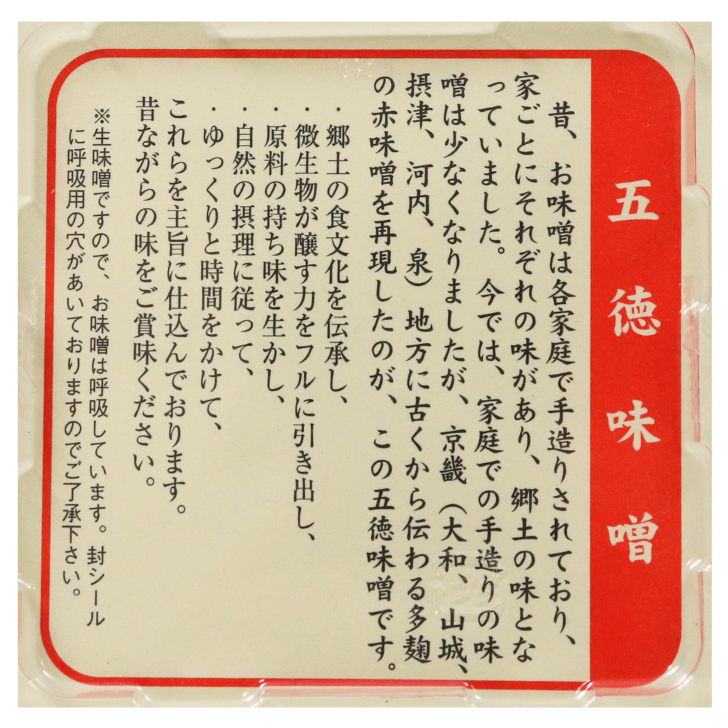 五徳味噌
昔、お味噌は各家庭で手造りされており、
家ごとにそれぞれの味があり、郷土の味とな
っていました。今では、家庭での手造りの味
噌は少なくなりましたが、京畿（大和、山城、
摂津、河内、泉）地方に古くから伝わる多麹
の赤味噌を再現したのが、この五徳味噌です。
・郷土の食文化を伝承し、
・微生物が醸す力をフルに引き出し、
・原料の持ち味を生かし、
・自然の摂理に従って、
・ゆっくりと時間をかけて、
これらを主旨に仕込んでおります。
昔ながらの味をご賞味ください。
※生味噌ですので、お味噌は呼吸しています。封シール
に呼吸用の穴があいておりますのでご了承下さい。